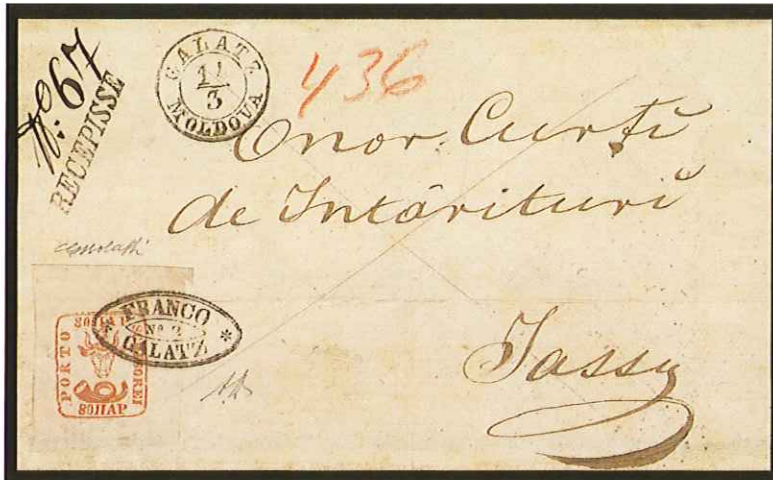 No: 67
RECEPISSE
GALATZ
11/3
MOLDOVA
436
Onor. Curți
de Intărituri
Jassy
FRANCO
No 2
GALATZ
PORTO
80 ПАР